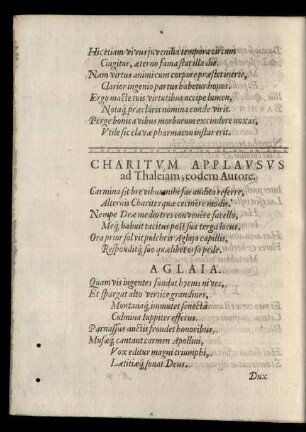 Hic etiam vivus juvenilia tempora circum
Cingitur, æterno fama stat illa die.
Nam virtus animi cum corpore præstet inerte,
Clarior ingenio partus habetur honos.
Ergo macte tuis virtutibus accipe lumen,
Notaq́ præclaris nomina conde viris.
Perge bonis avibus morborum excindere noxas,
Utile sic clavæ pharmacon instar erit.
CHARITVM APPLAVSVS
ad Thaleiam, eodem Autore.
Carmina sit brevibus mihi fas audita referre,
Alternis Charites quæ cecinere modis.
Nempe Deæ mediò tres convenere sacello,
Meq́, habuit tacitus post sua terga locus.
Ora prior solvit pulchris Aglaja capillis,
Responditq́ suo quælibet orsa pede.
AGLAIA.
Quamvis ingentes fundat hyems nives,
Et spargat alto vertice grandines,
Montanaq́, immutet senectâ
Culmina Iuppiter efferus.
Parnassus auctis frondet honoribus,
Musæq́, cantant carmen Apollini,
Vox editur magni triumphi,
Lætitiæq́, sonat Deus.
Dux